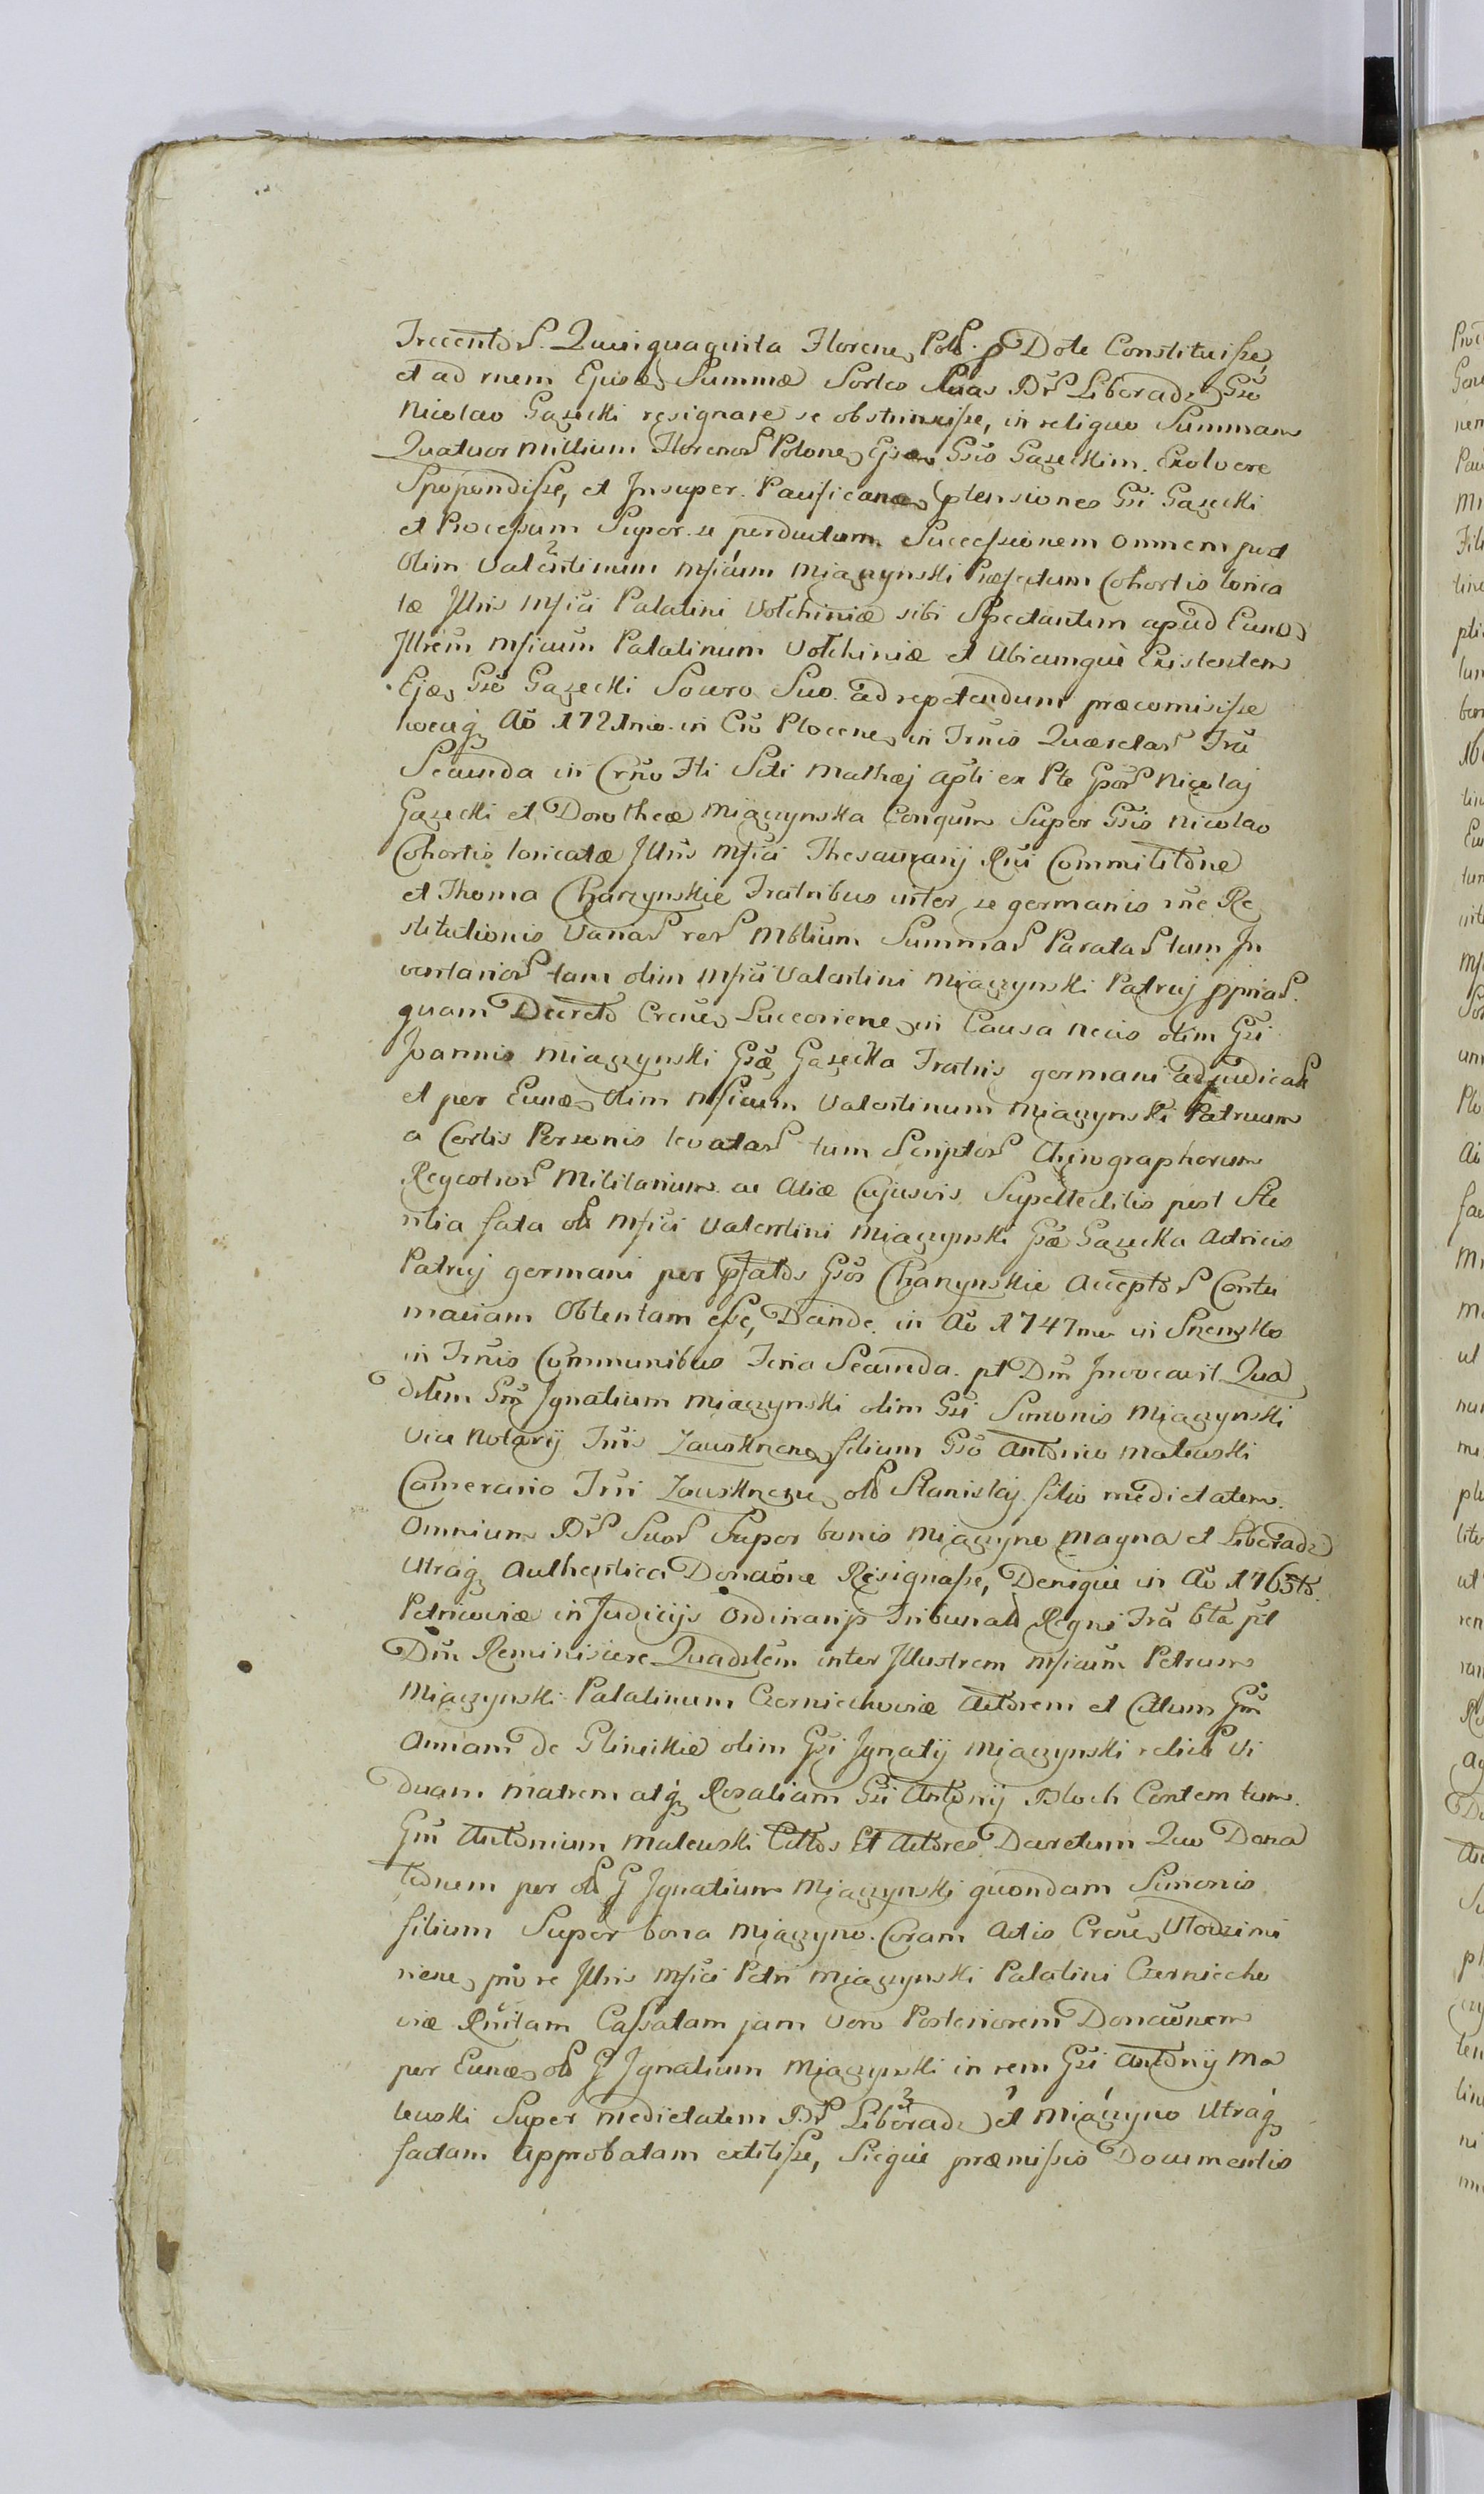 Trecentor. Quinquaginta Florenos Pols. p Dote Constituisse,
et ad rnem Ejusdem Summæ Sortes Suas Br Liberadz Gso
Nicolao Gazecki resignare se obstrinxisse, in reliquo Summam
Quatuor millium Florenor Polones Ejsdem Gsis Gazeckim. Exolvere
Spopondisse, et Insuper. Pacificanas ptensiones Gsi Gazecki
et Processum Super. se perductum Successionem omnem post
Olim Valentinum Mficum Miączynski Præfectum Cohortis lorica
tæ Illris Mfici Palatini Volhiniæ sibi Spectantem apud Eund
Illrem Mficum Palatinum Volhiniæ et Ubicunque Existentem
Ejd Gso Gazecki Socero Suo ad repetendum præcomisisse
hocag Ao 1721mo. in Cru Plocens in Trnis Quærelar Fra
Secunda in Crno Fti Scti Mathæj apli ex Pte Gsor Nicolaj
Gazecki et Dorotheæ Miączynska Conqum Super Gsis Nicolao
Cohortis loricatæ Illris Mfici Thesaurarij Rni Commilitone
et Thoma Charzynskie Fratribus inter se germanis rne Re
stitutionis Variar rer Mblium Summar Paratar tum In
ventarior tam olim Mfici Valentini Miączynski Patruj ppriar.
quam Decreto Crens Luceoriens in Causa necis olim Gsi
Joannis Miączynski Gsæ Gazecka Fratris germani adjudicat
et per Eund olim Mficum Valentinum Miączynski Patruum
a Certis Personis levatar tum Scriptor Chirographorum
Regestror Militarium ac Aliæ Cujusvis Supellectilis post Ste
rilia fata ols Mfici Valentini Miączynski Gsæ Gazecka Actricis
Patruj germani per pfatos Gsos Charzynskie Acceptor Contu
maciam Obtentam esse, Deinde in Ao 1747mo in Srensko
in Trnis Communibus Feria Secunda. pt Dm Invocavit Qua
dtem Gm Ignatium Miączynski olim Gsi Simonis Miączynski
Vice Notarij Trris Zawskrzens filium Gso Antonio Malewski
Camerario Trri Zawskrzens ols Stanislaj filio medietatem
Omnium Br Suor Super bonis Miączyno Magna et Liberadz
Utrag Authentica Donaone Resignasse, Denique in Ao 1765to
Petricoviæ in Judicijs Ordinarijs Tribunals Regni Fra 6ta pt
Dm Reminiscere Quadtem inter Illustrem Mficum Petrum
Miączynski Palatinum Czerniechoviæ Actorem et Citum Gm
Annam de Glinickie olim Gsi Ignatij Miączynski relict Vi
duam Matrem atq Rosaliam Gsi Antonij Bloch Contem tum
Gm Antonium Malewski Cittos Et Actores Decretum Quo Dona
tionem per ols G Ignatium Miączynski quondam Simonis
filium Super bona Miączyno. Coram Actis Crens Vlodzimi
riens, pro re Illris Mfici Petri Miączynski Palatini Czerniecho
viæ Rnitam Cassatam jam vero Posteriorem Donaonem
per Eund ols G Ignatium Miączynski in rem Gsi Antonij Ma
lewski Super medietatem Br Liberadz et Miączyno Utrag
factam Approbatam extitisse, Sicque præmissis Documentis